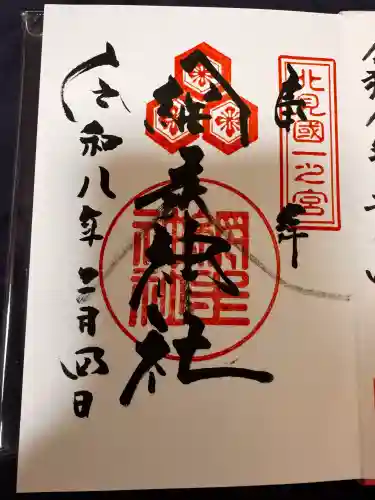 北見國一之宮
奉拝
網走神社
網走神社
令和八年二月四日